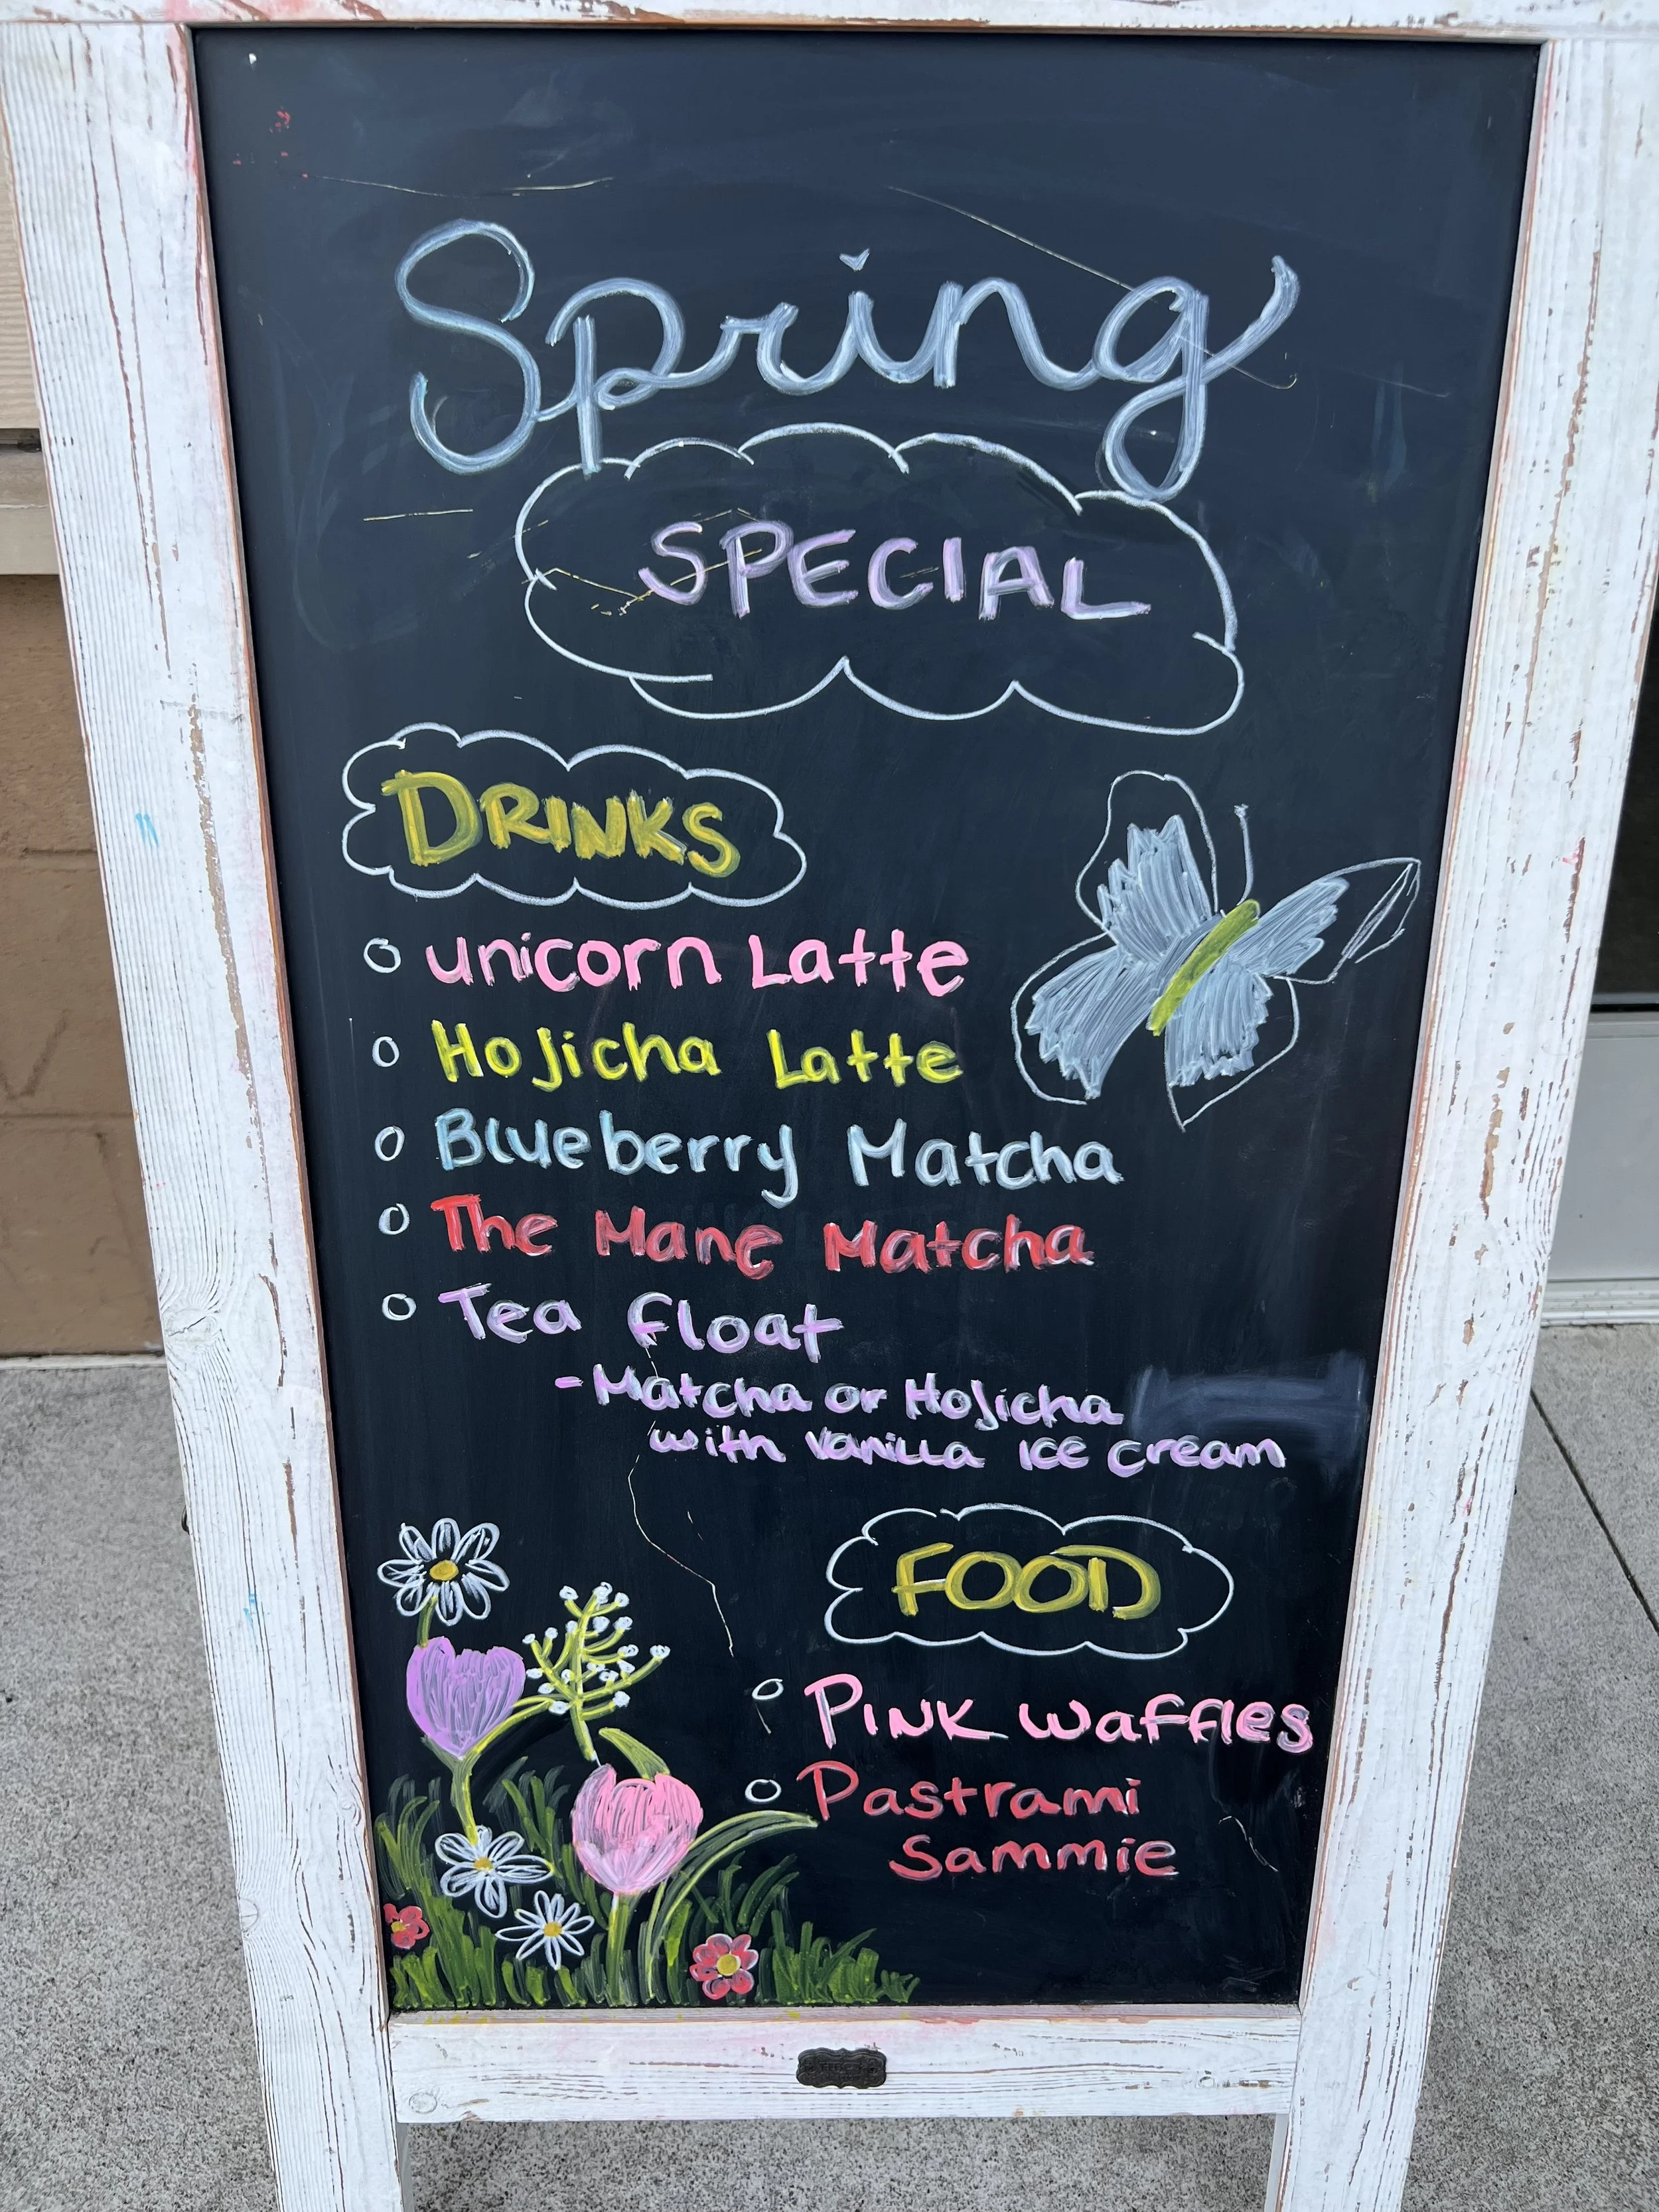 Spring
SPECIAL
DRINKS
unicorn Latte
Hojicha Latte
Blueberry Matcha
The Mane Matcha
Tea float
- Matcha or Hojicha
with vanilla Ice cream
FOOD
PINK waffles
Pastrami
Sammie